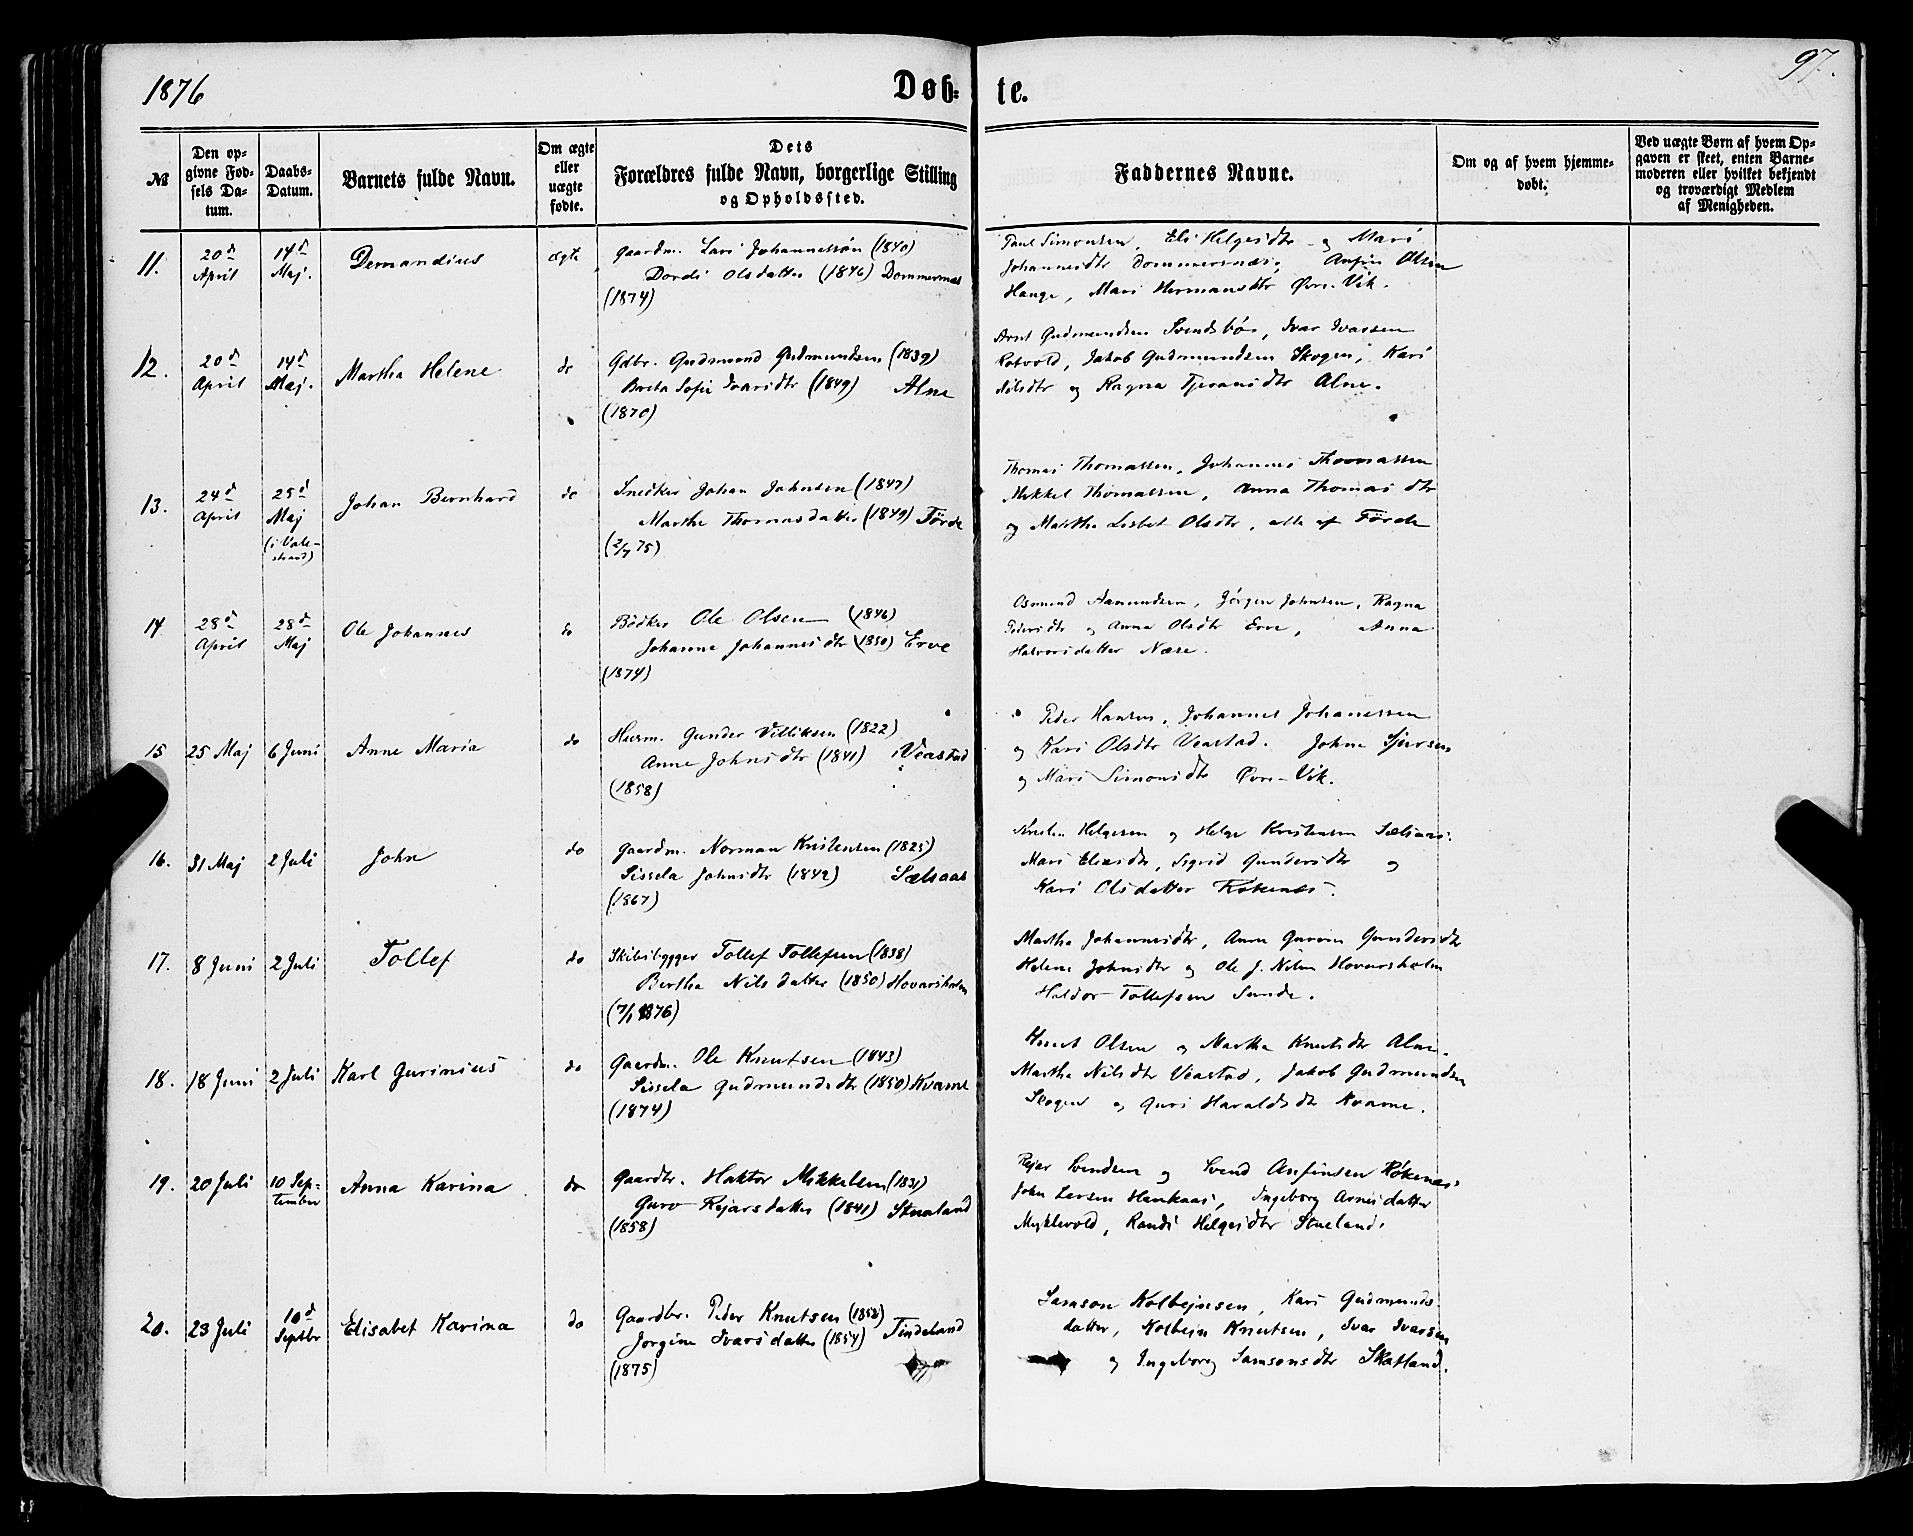 1876
Døb-
te.
97.
№
Den op-
givne Fød-
sels Da-
tum.
Daabs-
Datum.
Barnets fulde Navn.
Om ægte
eller
uægte
fødte.
Dets
Forældres fulde Navn, borgerlige Stilling
og Opholdssted.
Faddernes Navne.
Om og af hvem hjemme-
døbt.
Ved uægte Børn af hvem Op-
gaven er skeet, enten Barne-
moderen eller hvilket bekjendt
og troværdigt Medlem
af Menigheden.
11.
20d
April
14d
Maj.
Demandius
ægte
Gaardm. Lars Johannessøn (1840)
Dordi Olsdatter (1846) Dommersnæs
(1874)
Paul Simonsen, Eli Helgesdtr og Mari
Johannesdtr Dommersnæs, Anfin Olsen
Hauge, Mari Hermansdtr Øvre-Vik.
12.
20d
April
14d
Maj.
Martha Helene
do
Gdbr. Gudmund Gudmundsen (1839)
Brita Sofie Ivarsdtr (1849) Alne
(1870)
Arnt Gudmundsen Svendsbø, Ivar Ivarsen
Rotvold, Jakob Gudmundsen Skogen, Kari
Nilsdtr og Ragna Tjeransdtr Alne.
13.
24d
April
25d
Maj
(i Vale-
strand)
Johan Bernhard
do
Snedker Johan Johnsen (1847)
Marthe Thomasdatter (1849) Førde
(2/7 75)
Thomas Thomassen, Johannes Thomassen
Mikkel Thomassen, Anna Thomasdtr
og Martha Lisbet Olsdtr, alle af Førde
14
28d
April
28d
Maj
Ole Johannes
do
Bødker Ole Olsen (1846)
Johanne Johannesdtr (1850) Erve
(1874)
Osmund Aamundsen, Jørgen Johnsen, Ragna
Pedersdtr og Anna Olsdtr Erve, Anna
Halvorsdatter Nære.
15
25 Maj
6 Juni
Anne Maria
do
Husm. Gunder Villiksen (1822)
Anne Johnsdtr (1841) Veastad
(1858)
Peder Hansen, Johannes Johanessen
og Kari Olsdtr Veastad. Johne Sjursen
og Mari Simonsdtr Øvre-Vik.
16.
31 Maj
2 Juli
John
do
Gaardm. Norman Kristensen (1825)
Sissela Johnsdtr (1842) Sælsaas
(1867)
Helgesen og Helge Kristensen Sælsaas.
Mari Eliasdtr, Sigrid Gundersdtr og
Kari Olsdatter Røkenes.
17.
8 Juni
2 Juli
Tollef
do
Skibsbygger Tollef Tollefsen (1838)
Bertha Nilsdatter (1850) Hovarsholm
(7/1 1876)
Martha Johannesdtr, Anne Gurine Gundersdtr
Helene Johnsdtr og Ole J. Nilsen Hovarsholm
Haldor Tollefsen Sunde.
18.
18 Juni
2 Juli
Karl Gurinius
do
Gaardm. Ole Knutsen (1843)
Sissela Gudmundsdtr (1850) Kvame
(1874)
Knut Olsen og Martha Knutsdtr Alne.
Martha Nilsdtr Veastad, Jakob Gudmundsen
Skogen og Guri Haraldsdtr Kvame.
19.
20 Juli
10 Sep-
tember
Anna Karina
do
Gaardbr. Haktor Mikkelsen (1831)
Guro Rejarsdatter (1841) Stueland
(1858)
Rejar Svendsen og Svend Anfinsen Røkenes
John Larsen Haukaas, Ingeborg Arnesdatter
Myklevold, Randi Helgesdtr Stueland.
20.
23 Juli
10d
Septbr
Elisabet Karina
do
Gaardbr. Peder Knutsen (1852)
Jorgine Ivarsdatter (1854) Tindeland
(1875)
Samson Kolbejnsen, Kari Gudmunds-
datter, Kolbejn Knutsen, Ivar Ivarsen
og Ingeborg Samsonsdtr Skatland.